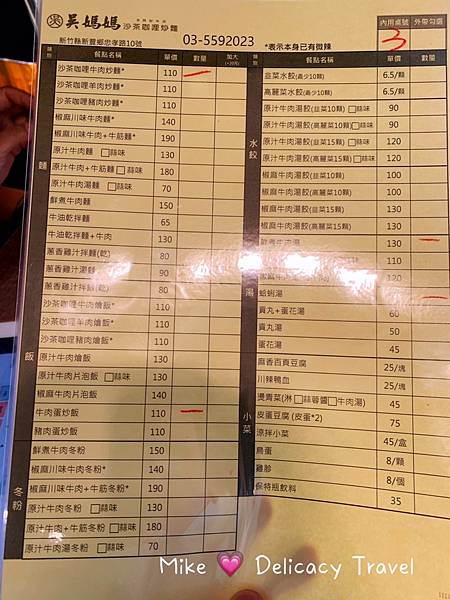 吳媽媽 沙茶咖哩炒麵
新竹縣新豐鄉忠孝路10號 03-5592023 *表示本身已有微辣
內用桌號 外帶勾選
3
類別 餐點名稱 單價 數量 加大
麵
沙茶咖哩牛肉炒麵* 110
沙茶咖哩羊肉炒麵* 110
沙茶咖哩豬肉炒麵* 110
椒麻川味牛肉麵* 140
椒麻川味牛肉+牛筋麵* 190
原汁牛肉麵 □蒜味 130
原汁牛肉+牛筋麵 □蒜味 180
原汁牛肉湯麵 □蒜味 70
鮮煮牛肉麵 150
牛油乾拌麵 65
牛油乾拌麵+牛肉 130
蔥香雞汁拌麵(乾) 80
蔥香雞汁湯麵 90
蔥香雞汁拌麵(乾) 80
飯
沙茶咖哩牛肉燴飯* 110
沙茶咖哩羊肉燴飯* 110
沙茶咖哩豬肉燴飯* 110
原汁牛肉燴飯 130
原汁牛肉片泡飯 □蒜味 130
椒麻牛肉片泡飯 140
牛肉蛋炒飯 110
豬肉蛋炒飯 110
冬粉
鮮煮牛肉冬粉 150
椒麻川味牛肉冬粉* 140
椒麻川味牛肉+牛筋冬粉* 190
原汁牛肉冬粉 □蒜味 130
原汁牛肉+牛筋冬粉 □蒜味 180
原汁牛肉湯冬粉 □蒜味 70
類別 餐點名稱 單價 數量
水餃
韭菜水餃(最少10顆) 6.5/顆
高麗菜水餃(最少10顆) 6.5/顆
原汁牛肉湯餃(韭菜10顆) □蒜味 90
原汁牛肉湯餃(高麗菜10顆) □蒜味 90
原汁牛肉湯餃(韭菜15顆) □蒜味 120
原汁牛肉湯餃(高麗菜15顆) □蒜味 120
椒麻牛肉湯餃(韭菜10顆) 100
椒麻牛肉湯餃(高麗菜10顆) 100
椒麻牛肉湯餃(韭菜15顆) 130
椒麻牛肉湯餃(高麗菜15顆) 130
湯
鮮煮牛肉湯 130
110
120
蛤蜊湯
貢丸+蛋花湯 60
貢丸湯 50
蛋花湯 45
小菜
麻香百頁豆腐 25/塊
川辣鴨血 25/塊
燙青菜(淋 □蒜蓉醬 □牛肉湯) 45
皮蛋豆腐 (皮蛋*2) 75
涼拌小菜 45/盒
鳥蛋 8/顆
雞胗 8/個
保特瓶飲料 35
Mike 💗 Delicacy Travel